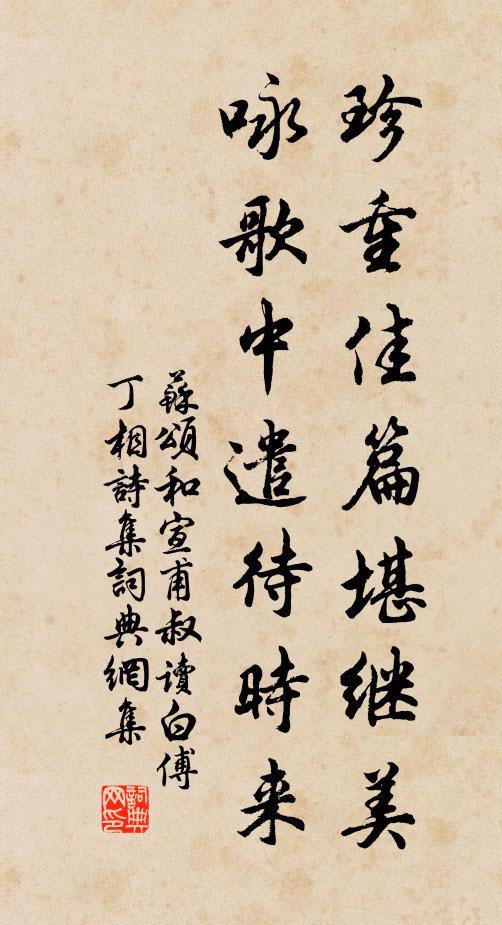 珍重佳篇堪继美
咏歌中遣待時来
蘇頌和宣甫叔讀白傅
丁相詩集詞典網集
詞典网印